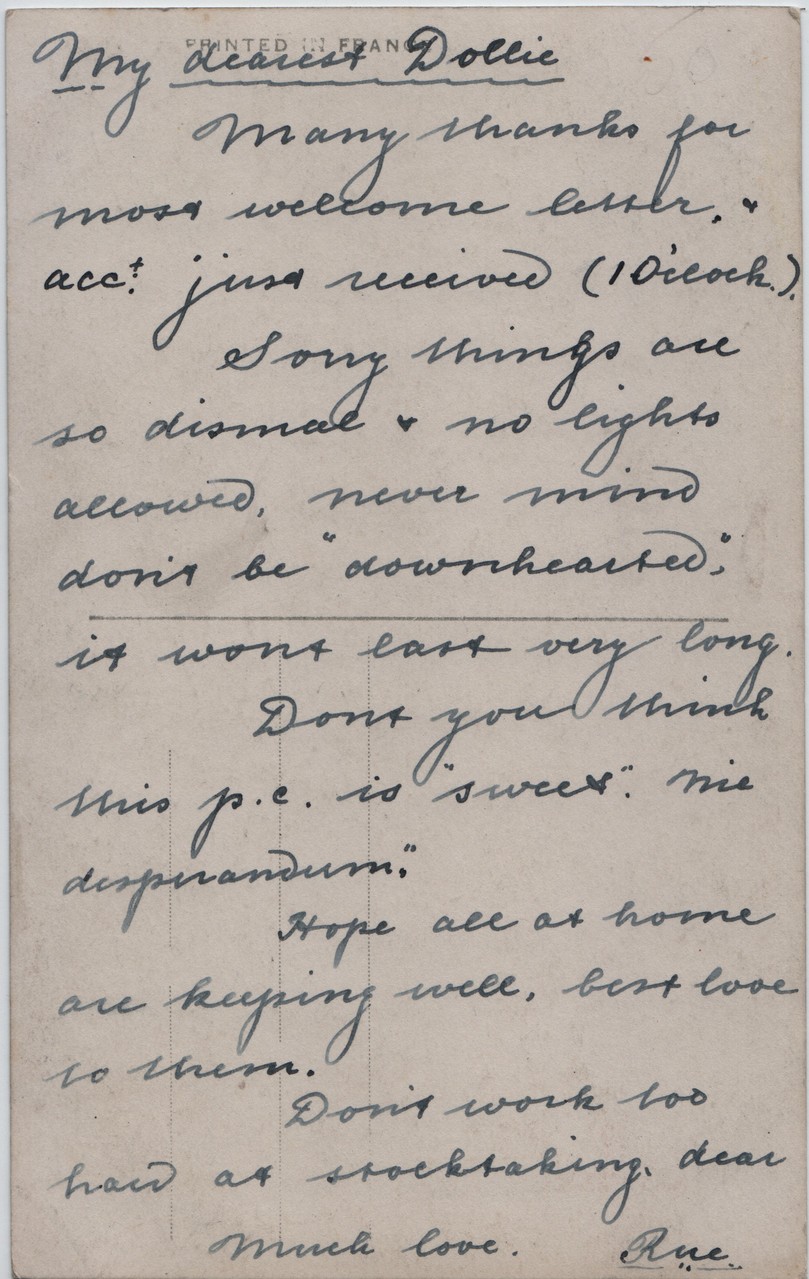 PRINTED IN FRANC
My dearest Dollie
Many thanks for
most welcome letter, &
acct. just received (1 O'clock.).
Sorry things are
so dismal & no lights
allowed, never mind
don't be "downhearted",
it wont last very long.
Dont you think
this p.c. is "sweet". "Nie
desperandum."
Hope all at home
are keeping well, best love
to them.
Don't work too
hard at stocktaking, dear
Much love. Rue.